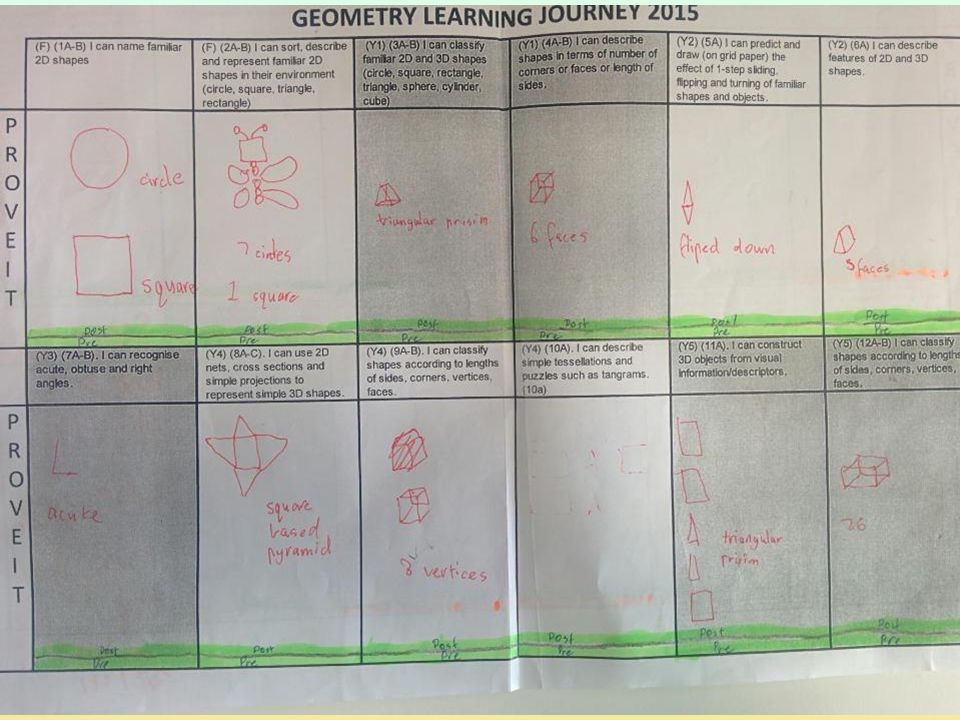 GEOMETRY LEARNING JOURNEY 2015
(F) (1A-B) I can name familiar
2D shapes
(F) (2A-B) I can sort, describe
and represent familiar 2D
shapes in their environment
(circle, square, triangle,
rectangle)
(Y1) (3A-B) I can classify
familiar 2D and 3D shapes
(circle, square, rectangle,
triangle, sphere, cylinder,
cube)
(Y1) (4A-B) I can describe
shapes in terms of number of
corners or faces or length of
sides.
(Y2) (5A) I can predict and
draw (on grid paper) the
effect of 1-step sliding,
flipping and turning of familiar
shapes and objects.
(Y2) (6A) I can describe
features of 2D and 3D
shapes.
PROVE IT
circle
square
7 cirlces
1 square
triangular prisim
6 faces
fliped down
5 faces
Post
Pre
Post
Pre
Post
Pre
Post
Pre
Post
Pre
Post
Pre
(Y3) (7A-B). I can recognise
acute, obtuse and right
angles.
(Y4) (8A-C). I can use 2D
nets, cross sections and
simple projections to
represent simple 3D shapes.
(Y4) (9A-B). I can classify
shapes according to lengths
of sides, corners, vertices,
faces.
(Y4) (10A). I can describe
simple tessellations and
puzzles such as tangrams.
(10a)
(Y5) (11A). I can construct
3D objects from visual
information/descriptors.
(Y5) (12A-B) I can classify
shapes according to lengths
of sides, corners, vertices,
faces.
PROVE IT
acute
square
based
pyramid
8 vertices
triangular
prisim
26
Post
Pre
Post
Pre
Post
Pre
Post
Pre
Post
Pre
Post
Pre